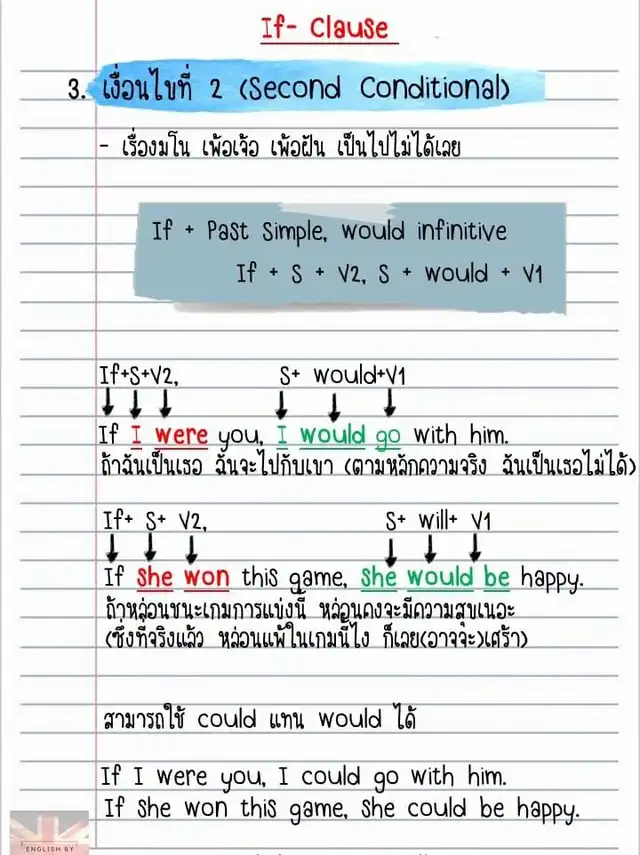 If- Clause
3. เงื่อนไขที่ 2 (Second Conditional)
- เรื่องมโน เพ้อเจ้อ เพ้อฝัน เป็นไปไม่ได้เลย
If + Past Simple, would infinitive
If + S + V2, S + would + V1
If+S+V2, S+ would+V1
If I were you, I would go with him.
ถ้าฉันเป็นเธอ ฉันจะไปกับเขา (ตามหลักความจริง ฉันเป็นเธอไม่ได้)
If+ S+ V2, S+ will+ V1
If She won this game, She would be happy.
ถ้าหล่อนชนะเกมการแข่งนี้ หล่อนคงจะมีความสุขเนอะ
(ซึ่งที่จริงแล้ว หล่อนแพ้ในเกมนี้ไง ก็เลย(อาจจะ)เศร้า)
สามารถใช้ could แทน would ได้
If I were you, I could go with him.
If She won this game, She could be happy.
ENGLISH BY